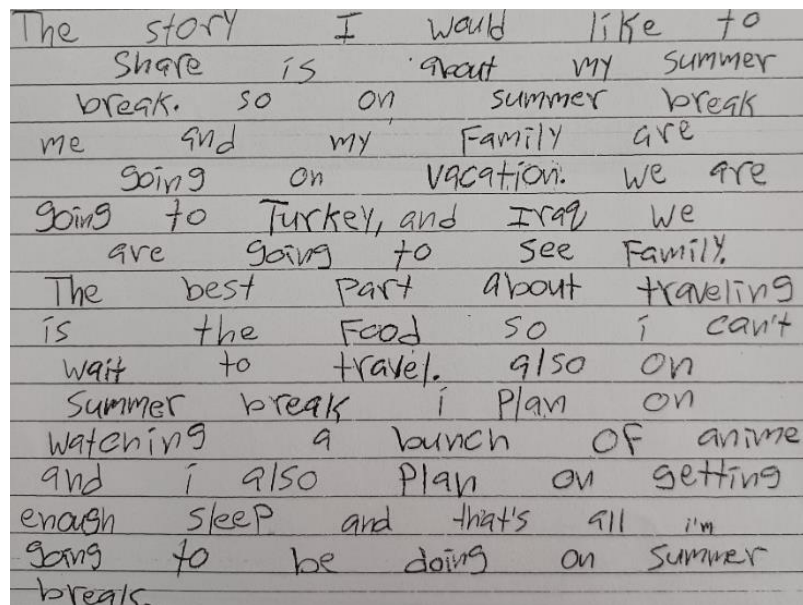 The story I would like to
Share is about my summer
break. so on summer break
me and my Family are
going on vacation. we are
going to Turkey, and Iraq we
are going to see Family.
The best part about traveling
is the Food so i can't
wait to travel. also on
summer break i Plan on
watching a bunch OF anime
and i also Plan on getting
enough sleep and that's all i'm
going to be doing on summer
break.